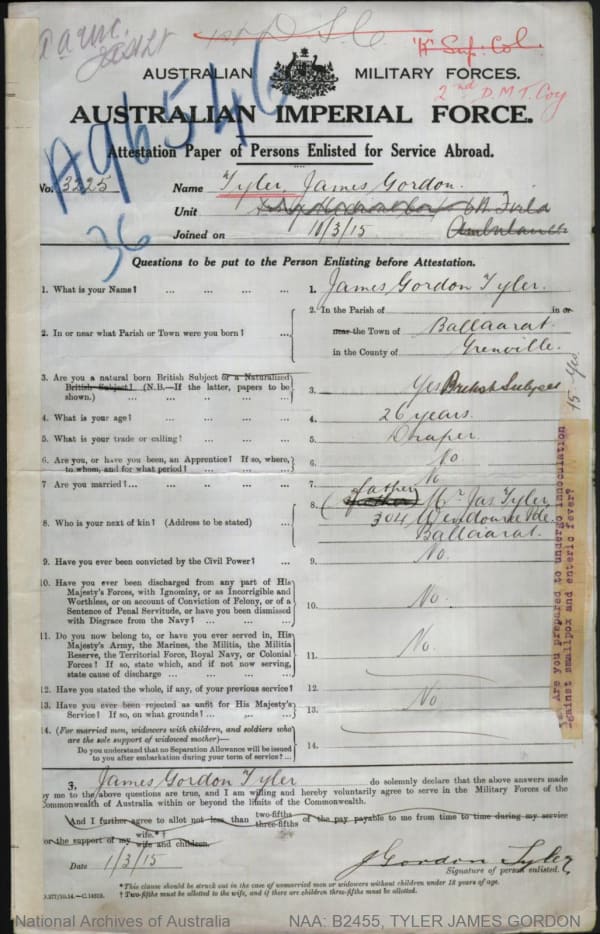 1st D.S.C
"A" Sup: Col.
2nd D.M.T. Coy
AUSTRALIAN MILITARY FORCES.
AUSTRALIAN IMPERIAL FORCE.
A96546
36
Attestation Paper of Persons Enlisted for Service Abroad.
No. 3225 Name Tyler, James Gordon.
Unit 6th Field Ambulance
Joined on 10/3/15
Questions to be put to the Person Enlisting before Attestation.
1. What is your Name? ... ... ... ... 1. James Gordon Tyler.
2. In or near what Parish or Town were you born? ... 2. In the Parish of in or
near the Town of Ballaarat.
in the County of Grenville.
3. Are you a natural born British Subject or a Naturalized
British Subject? (N.B.—If the latter, papers to be
shown.) ... ... ... ... 3. Yes British Subject
4. What is your age? ... ... ... ... 4. 26 years.
5. What is your trade or calling? ... ... ... 5. Draper
6. Are you, or have you been, an Apprentice? If so, where,
to whom, and for what period? ... ... 6. No.
7. Are you married?... ... ... ... 7. No
8. Who is your next of kin? (Address to be stated) ... 8. (father) Mr Jas Tyler
304 Wendouree Pde.
Ballaarat.
9. Have you ever been convicted by the Civil Power? ... 9. No.
10. Have you ever been discharged from any part of His
Majesty's Forces, with Ignominy, or as Incorrigible and
Worthless, or on account of Conviction of Felony, or of a
Sentence of Penal Servitude, or have you been dismissed
with Disgrace from the Navy? ... ... ... 10. No.
11. Do you now belong to, or have you ever served in, His
Majesty's Army, the Marines, the Militia, the Militia
Reserve, the Territorial Force, Royal Navy, or Colonial
Forces? If so, state which, and if not now serving,
state cause of discharge ... ... ... ... 11. No.
12. Have you stated the whole, if any, of your previous service? 12.
13. Have you ever been rejected as unfit for His Majesty's
Service? If so, on what grounds? ... ... ... 13. No
14. (For married men, widowers with children, and soldiers who
are the sole support of widowed mother)—
Do you understand that no Separation Allowance will be issued
to you after embarkation during your term of service? ... 14.
15. Are you prepared to undergo innoculation
against smallpox and enteric fever?
15. Yes
I, James Gordon Tyler do solemnly declare that the above answers made
by me to the above questions are true, and I am willing and hereby voluntarily agree to serve in the Military Forces of the
Commonwealth of Australia within or beyond the limits of the Commonwealth.
And I further agree to allot not less than two-fifths three-fifths of the pay payable to me from time to time during my service
for the support of my wife.*† wife and children.
Date 1/3/15 J Gordon Tyler
Signature of person enlisted.
* This clause should be struck out in the case of unmarried men or widowers without children under 18 years of age.
† Two-fifths must be allotted to the wife, and if there are children three-fifths must be allotted.
National Archives of Australia NAA: B2455, TYLER JAMES GORDON